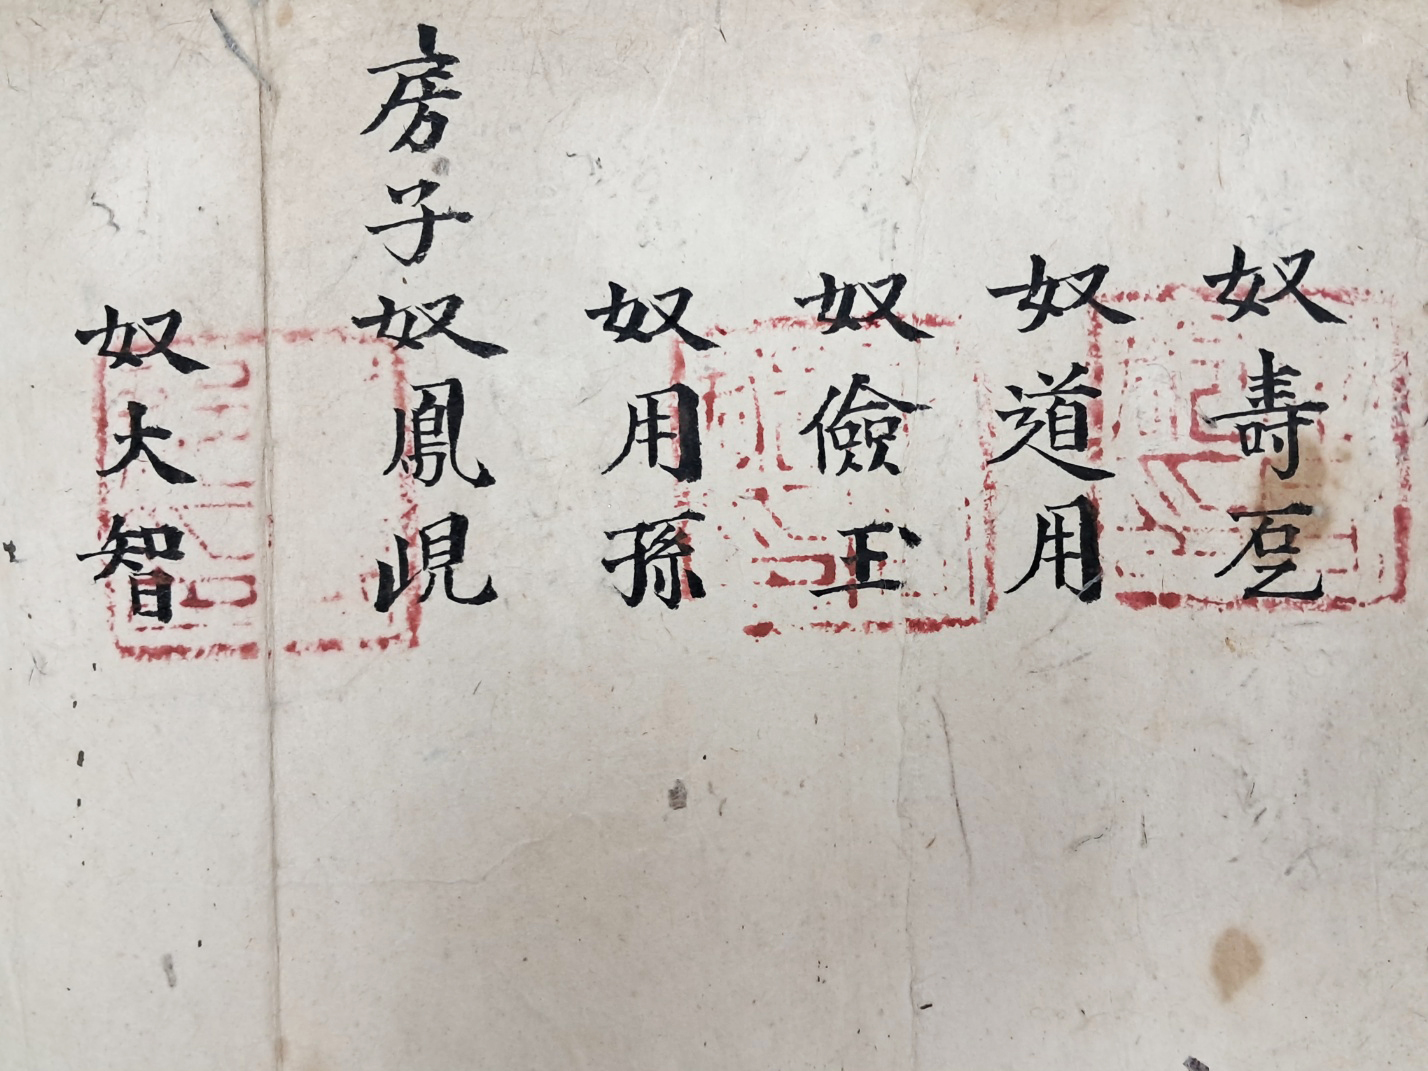 奴壽乭
奴道用
奴儉玉
奴用孫
房子奴鳳峴
奴大智